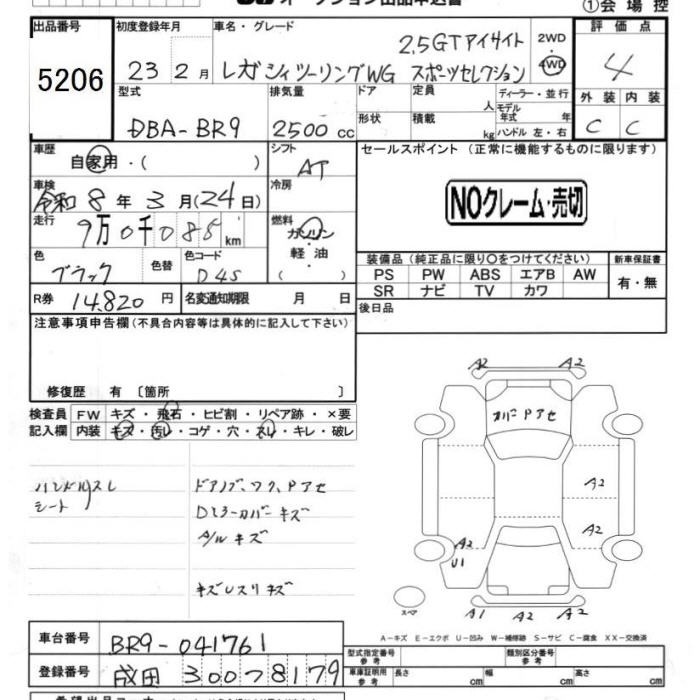 オークション出品申込書
①会場控
出品番号 初度登録年月 車名・グレード 評価点
5206 23 2月 レガシィツーリングWG 2.5GTアイサイト スポーツセレクション 2WD 4WD 4
型式 排気量 ドア 定員 人 ディーラー・並行 外装 内装
DBA-BR9 2500 cc 形状 積載 kg モデル年式 年 ハンドル 左・右 C C
車歴 自家用・( ) シフト AT
セールスポイント(正常に機能するものに限ります)
車検 令和8年3月(24日) 冷房
NOクレーム・売切
走行 9万0千088km 燃料 ガソリン 軽油 ( )
色 ブラック 色替 色コード D4S
装備品(純正品に限り○をつけてください) 新車保証書
PS PW ABS エアB AW 有・無
SR ナビ TV カワ
R券 14,820円 名変通知期限 月 日
後日品
注意事項申告欄(不具合内容等は具体的に記入して下さい)
修復歴 有〔箇所 〕
検査員 FW キズ・飛石・ヒビ割・リペア跡・×要
記入欄 内装 キズ・汚レ・コゲ・穴・スレ・キレ・破レ
A2 A2
カバーPアセ
ハンドルスレ
シート
ドアノブ、ワク、Pアセ
Dミラーカバーキズ
A/Wキズ
キズ
A2
A2
A2
U1
スペア
A1 A2 A2
A-キズ E-エクボ U-凹み W-補修跡 S-サビ C-腐食 XX-交換済
車台番号 BR9-041761
登録番号 成田 300つ8179
型式指定番号 参考 類別区分番号 参考
車庫証明用 参考 長さ cm 幅 cm 高さ cm